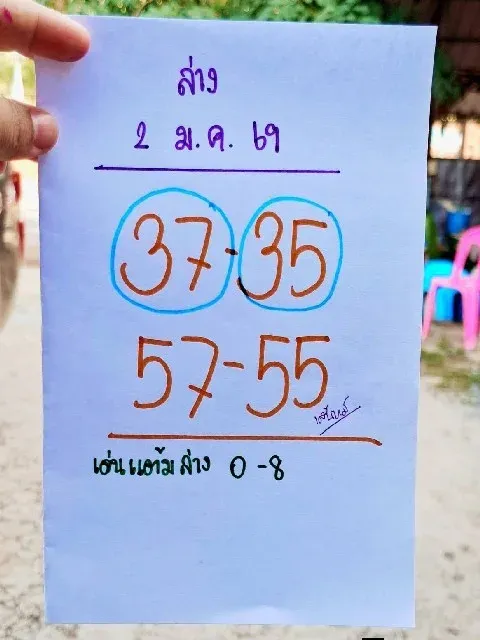 ล่าง
2 ม.ค. 69
37-35
57-55
เอ่นแอต้ม ล่าง 0-8